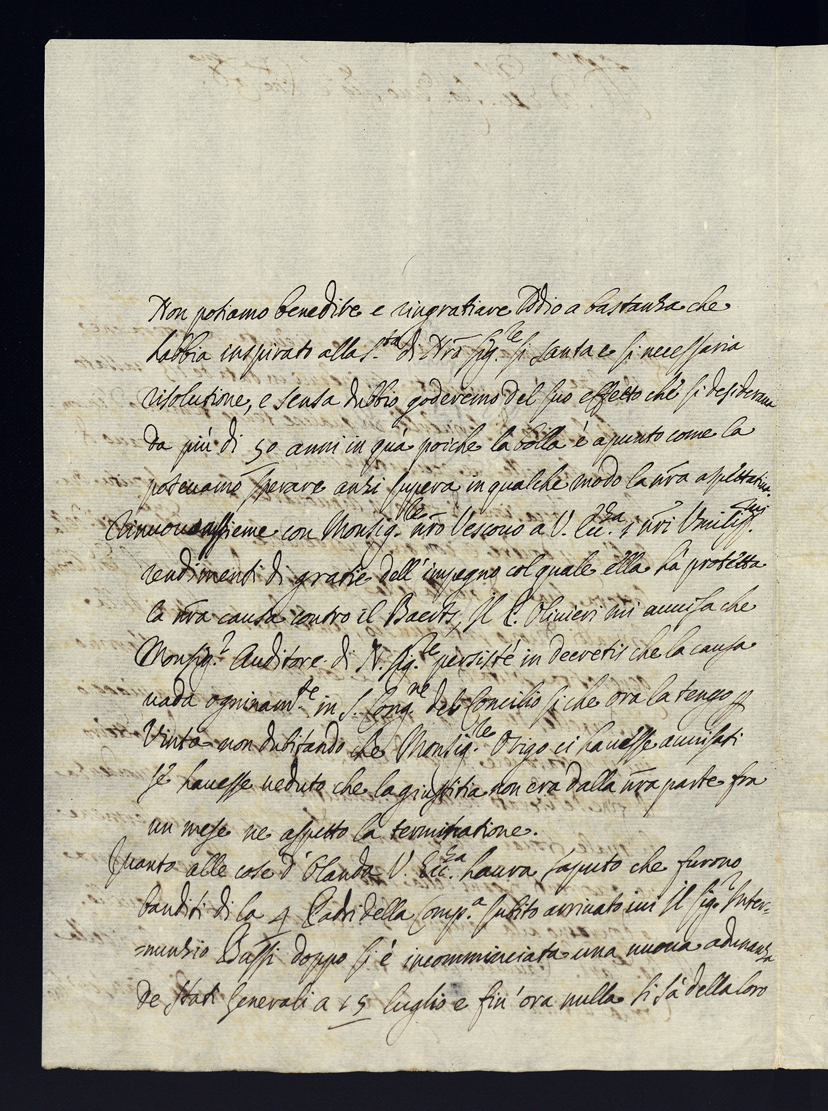 Non potiamo benedire e ringratiare Iddio a bastanza che
habbia inspirato alla S.tà di Nrō Sig.re si santa e si necessaria
risolutione, e sensa dubbio goderemo del suo effetto che si desiderava
da più di 50 anni in quà poiche la bolla é apunto come la
potevamo sperare anzi supera in qualche modo la nrā aspettativa.
Rinnovo assieme con Monsig.re nrō Vescovo a V. Ecc.za i nrī Umiliss.mi
rendimenti di gratie dell'impegno col quale ella hà protetta
la nrā causa contro il Baerts, Il P. Olivieri mi avvisa che
Monsig.r Auditore di N. Sig.re persiste in decretis che la causa
vada ogninam.te in S. Cong.ne del Concilio si che ora la tengo p
Vinta non dubitando che Monsig.re Origo ci havesse avvisati
se havesse veduto che la giustitia non era dalla nrā parte fra
un mese ne aspetto la terminatione.
Quanto alle cose d'Olanda V. Ecc.za havrà saputo che furono
banditi di la 4 Padri della Comp.a subito arrivato ivi il Sig.r Inter=
=nunzio Bussi doppo si é incomminciata una nuova adunanza
de Stati Generali a 15 luglio e fin'ora nulla si sà della loro